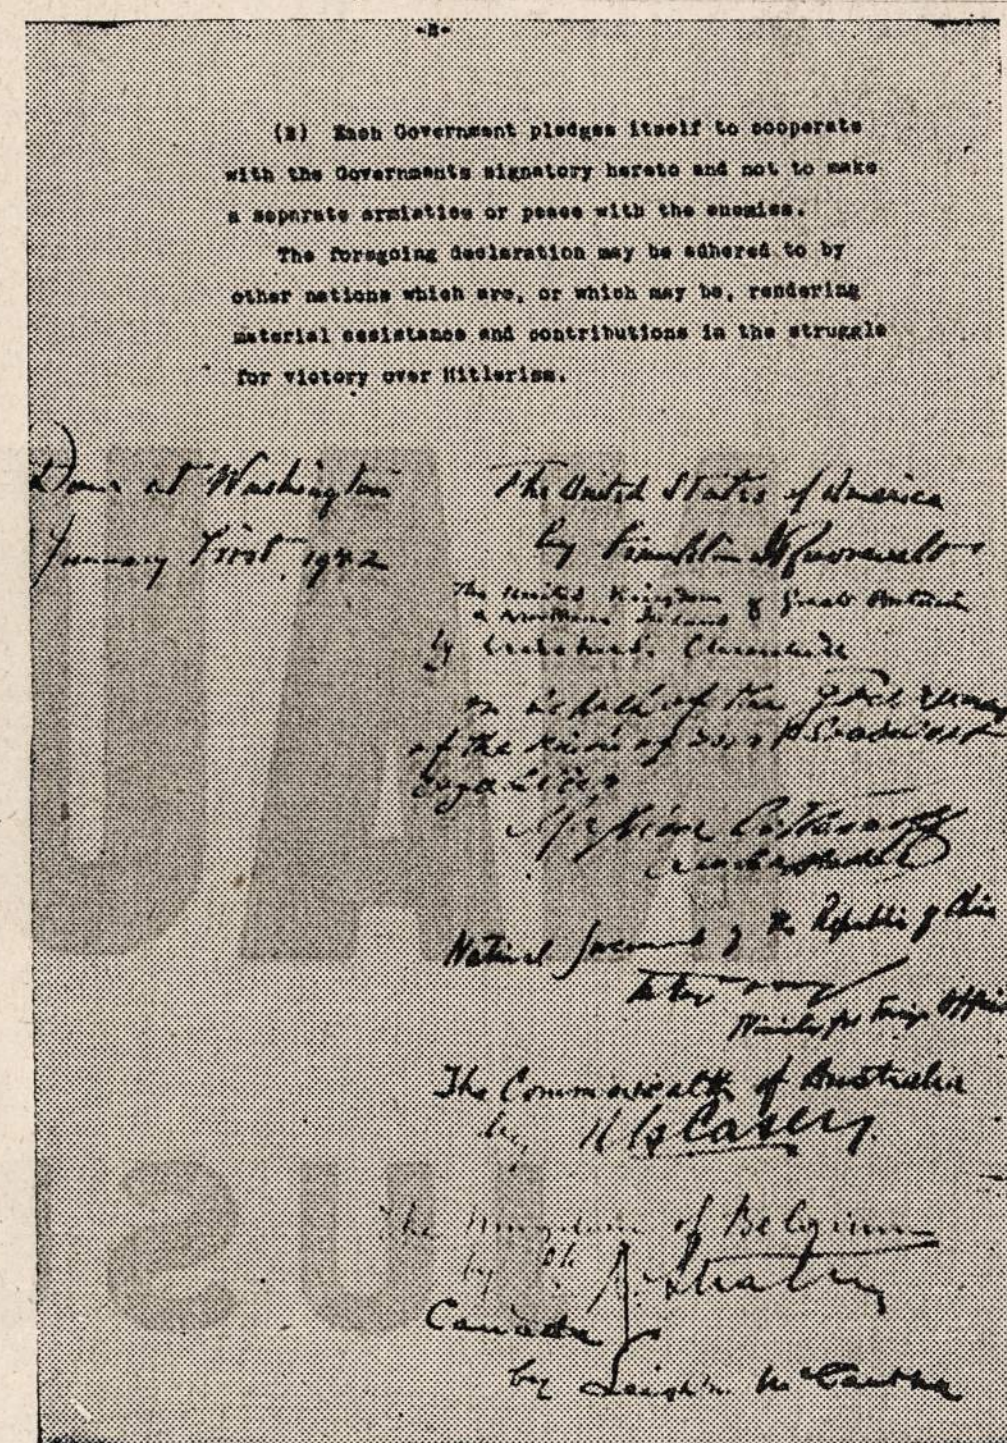 -2-
(2) Each Government pledges itself to cooperate
with the Governments signatory hereto and not to make
a separate armistice or peace with the enemies.
The foregoing declaration may be adhered to by
other nations which are, or which may be, rendering
material assistance and contributions in the struggle
for victory over Hitlerism.
Done at Washington
January First, 1942
The United States of America
by Franklin D Roosevelt
The United Kingdom of Great Britain
& Northern Ireland
by Winston S. Churchill
on behalf of the
of the Union of Soviet Socialist
Maxime Litvinoff
Ambassador
National Government of the Republic of China
Minister for Foreign Affairs
The Commonwealth of Australia
by R G Casey
The Kingdom of Belgium
by
Canada
by Leighton McCarthy